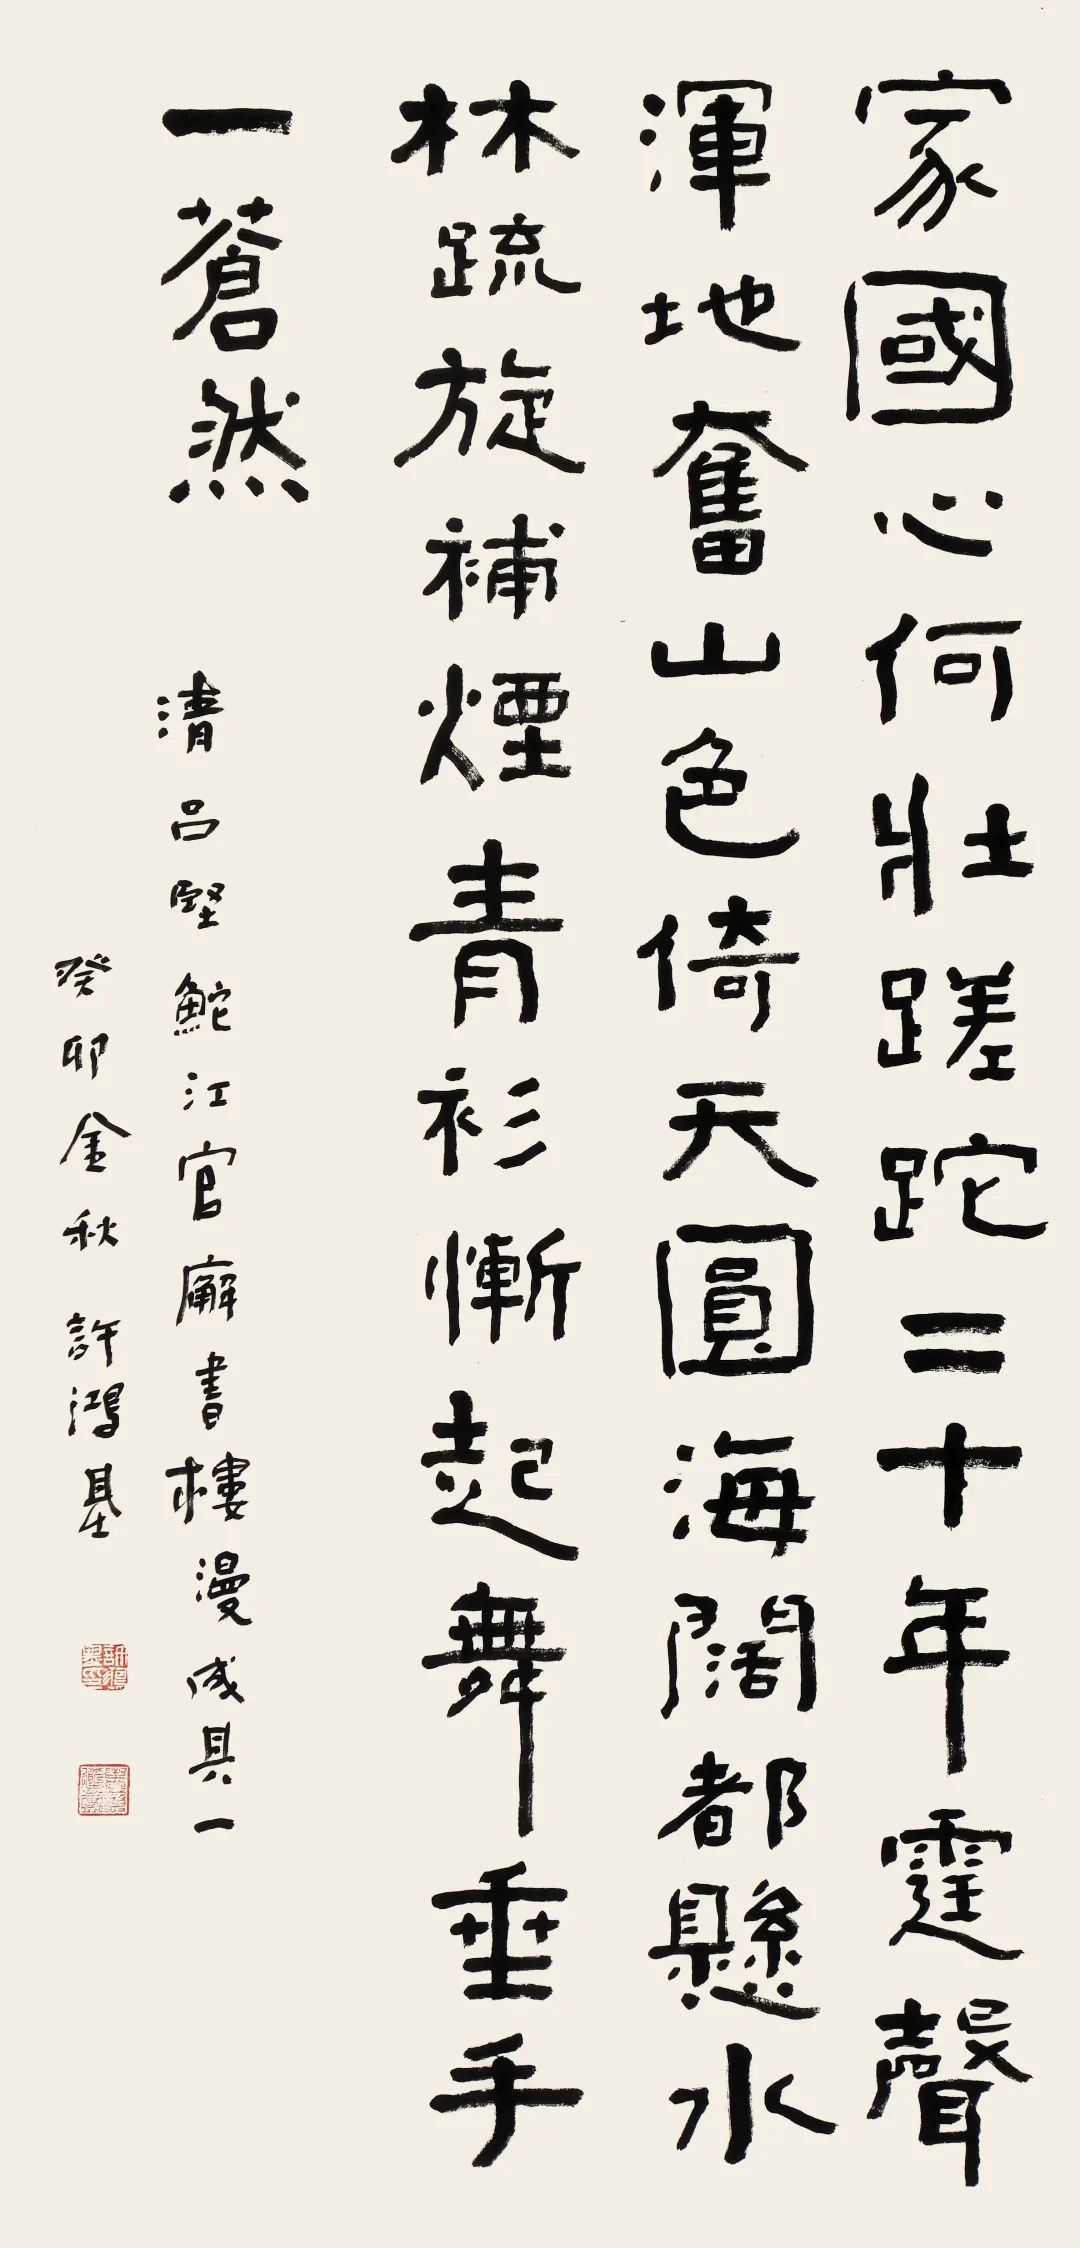 家國心何壯蹉跎二十年霆聲
渾地奮山色倚天圓海闊都懸水
林疏旋補煙青衫慚起舞垂手
一蒼然
清呂堅鮀江官廨書樓漫成其一
癸卯金秋 許鴻基